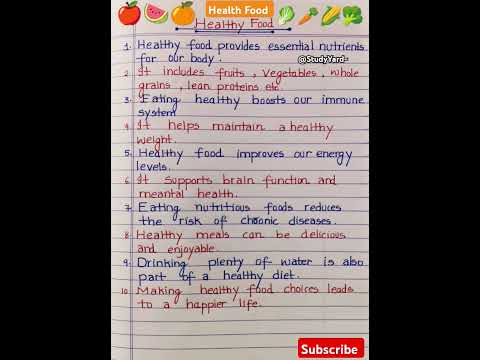 Health Food
Healthy Food
@StudyYard-
1. Healthy food provides essential nutrients
for our body.
2. It includes fruits, Vegetables, whole
grains, lean proteins etc.
3. Eating healthy boosts our immune
system
4. It helps maintain a healthy
weight.
5. Healthy food improves our energy
levels.
6. It supports brain function and
meantal health.
7. Eating nutritious foods reduces
the risk of chronic diseases.
8. Healthy meals can be delicious
and enjoyable.
9. Drinking plenty of water is also
part of a healthy diet.
10. Making healthy food choices leads
to a happier life.
Subscribe